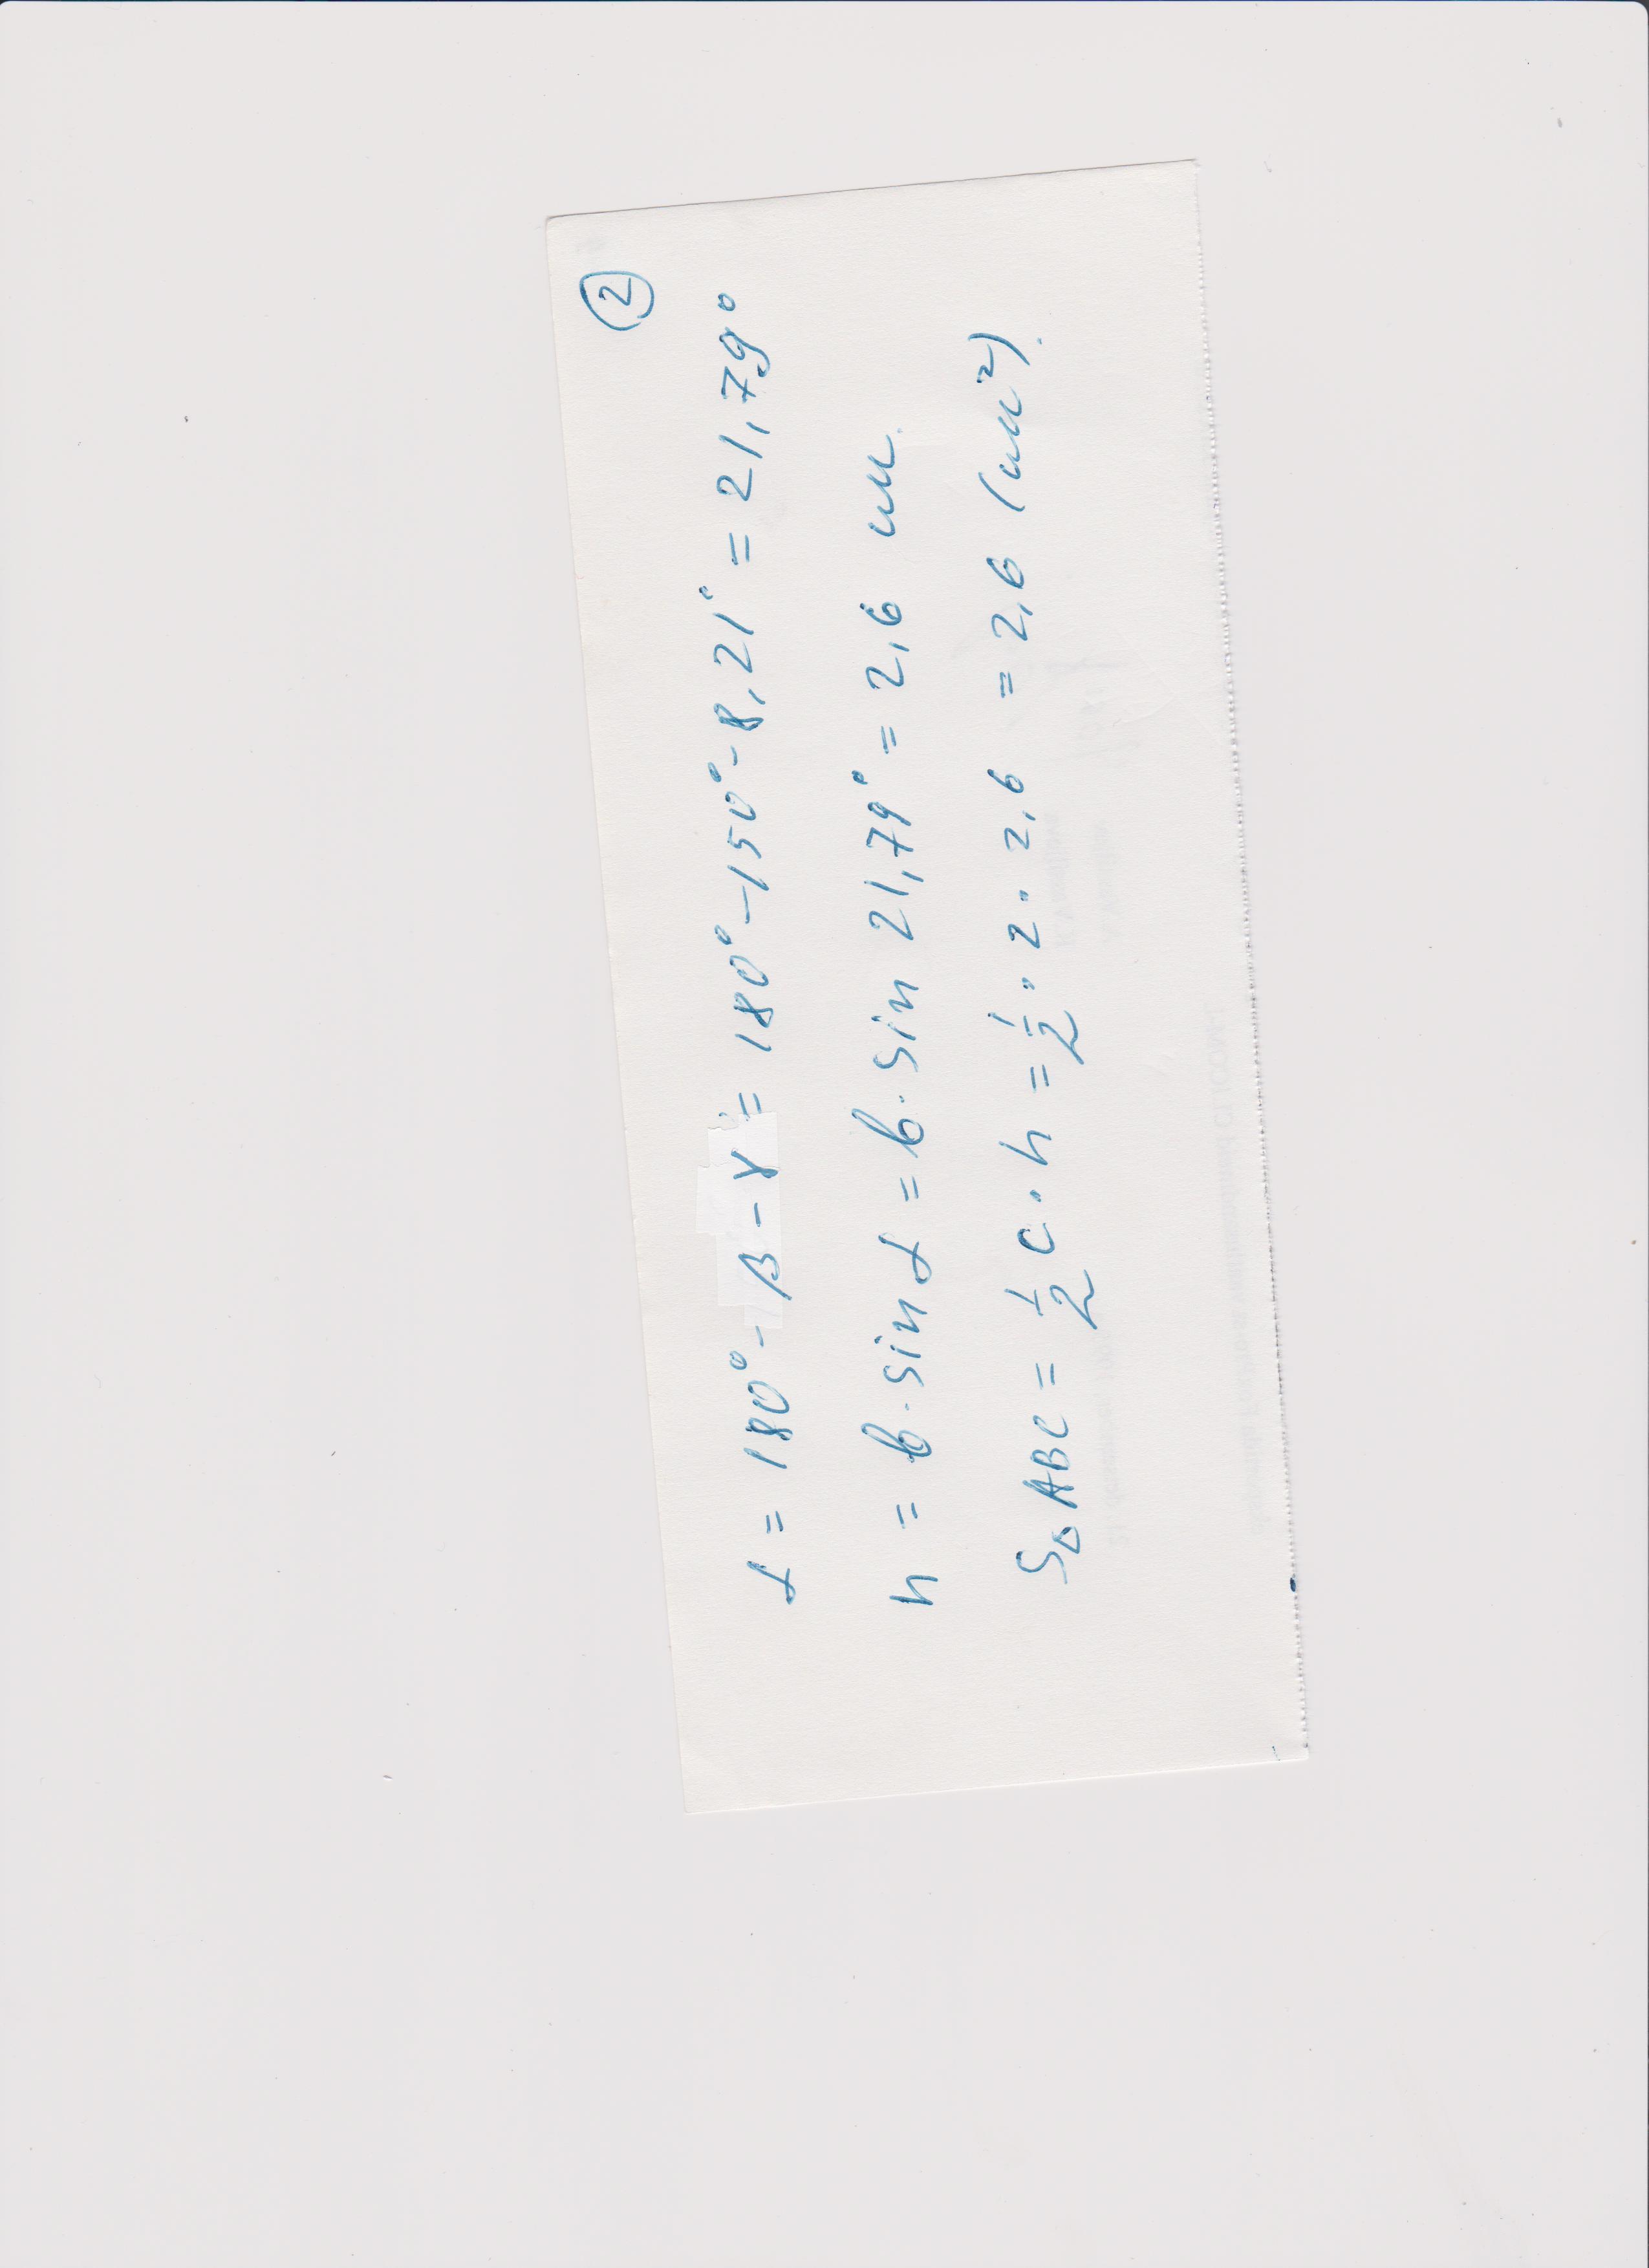 ②
α = 180° - β - γ = 180° - 150° - 8,21° = 21,79°
h = b · sin α = b · sin 21,79° = 2,6 см.
S△ABC = 1/2 c · h = 1/2 · 2 · 2,6 = 2,6 (см²).